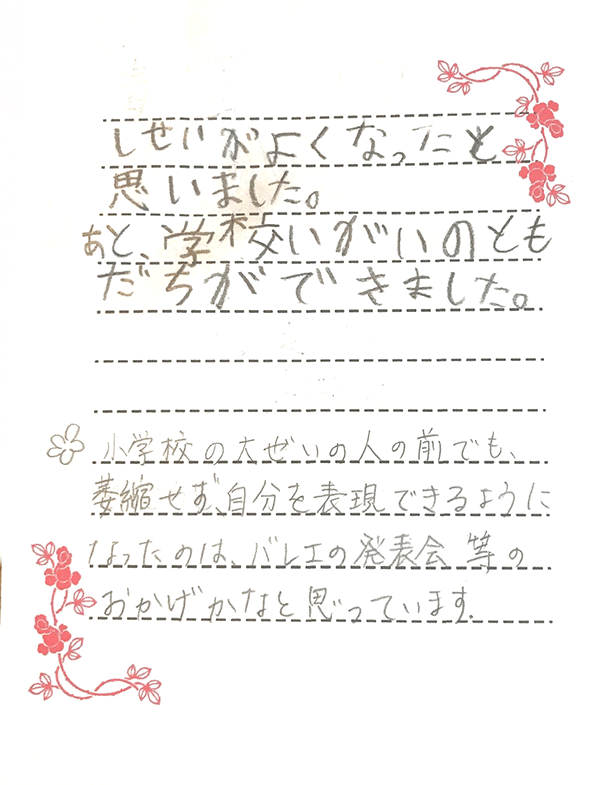 しせいがよくなったと
思いました。
あと、学校いがいのとも
だちができました。
小学校の大ぜいの人の前でも、
萎縮せず、自分を表現できるように
なったのは、バレエの発表会等の
おかげかなと思っています.